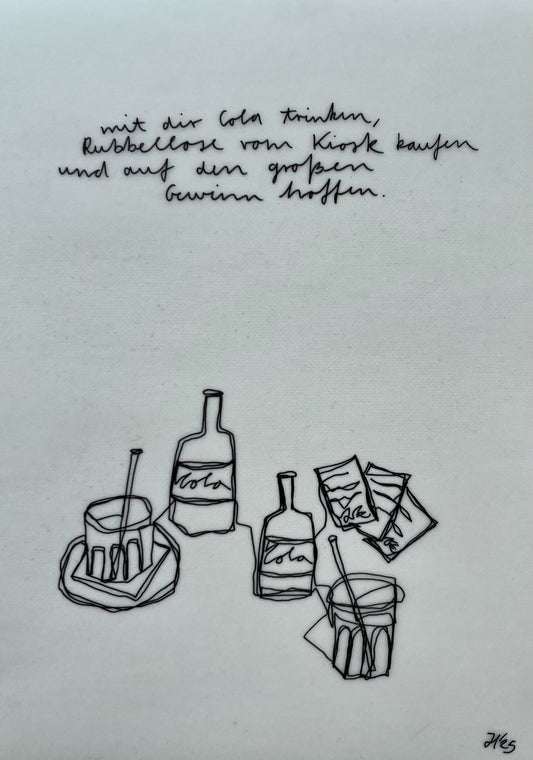 mit dir Cola trinken,
Rubbellose vom Kiosk kaufen
und auf den großen
Gewinn hoffen.
Cola
Cola